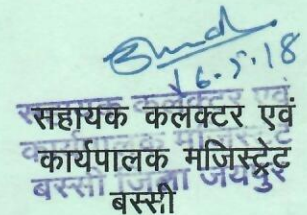 16.5.18
सहायक कलेक्टर एवं
कार्यपालक मजिस्ट्रेट
बस्सी जिला जयपुर
सहायक कलेक्टर एवं
कार्यपालक मजिस्ट्रेट
बस्सी